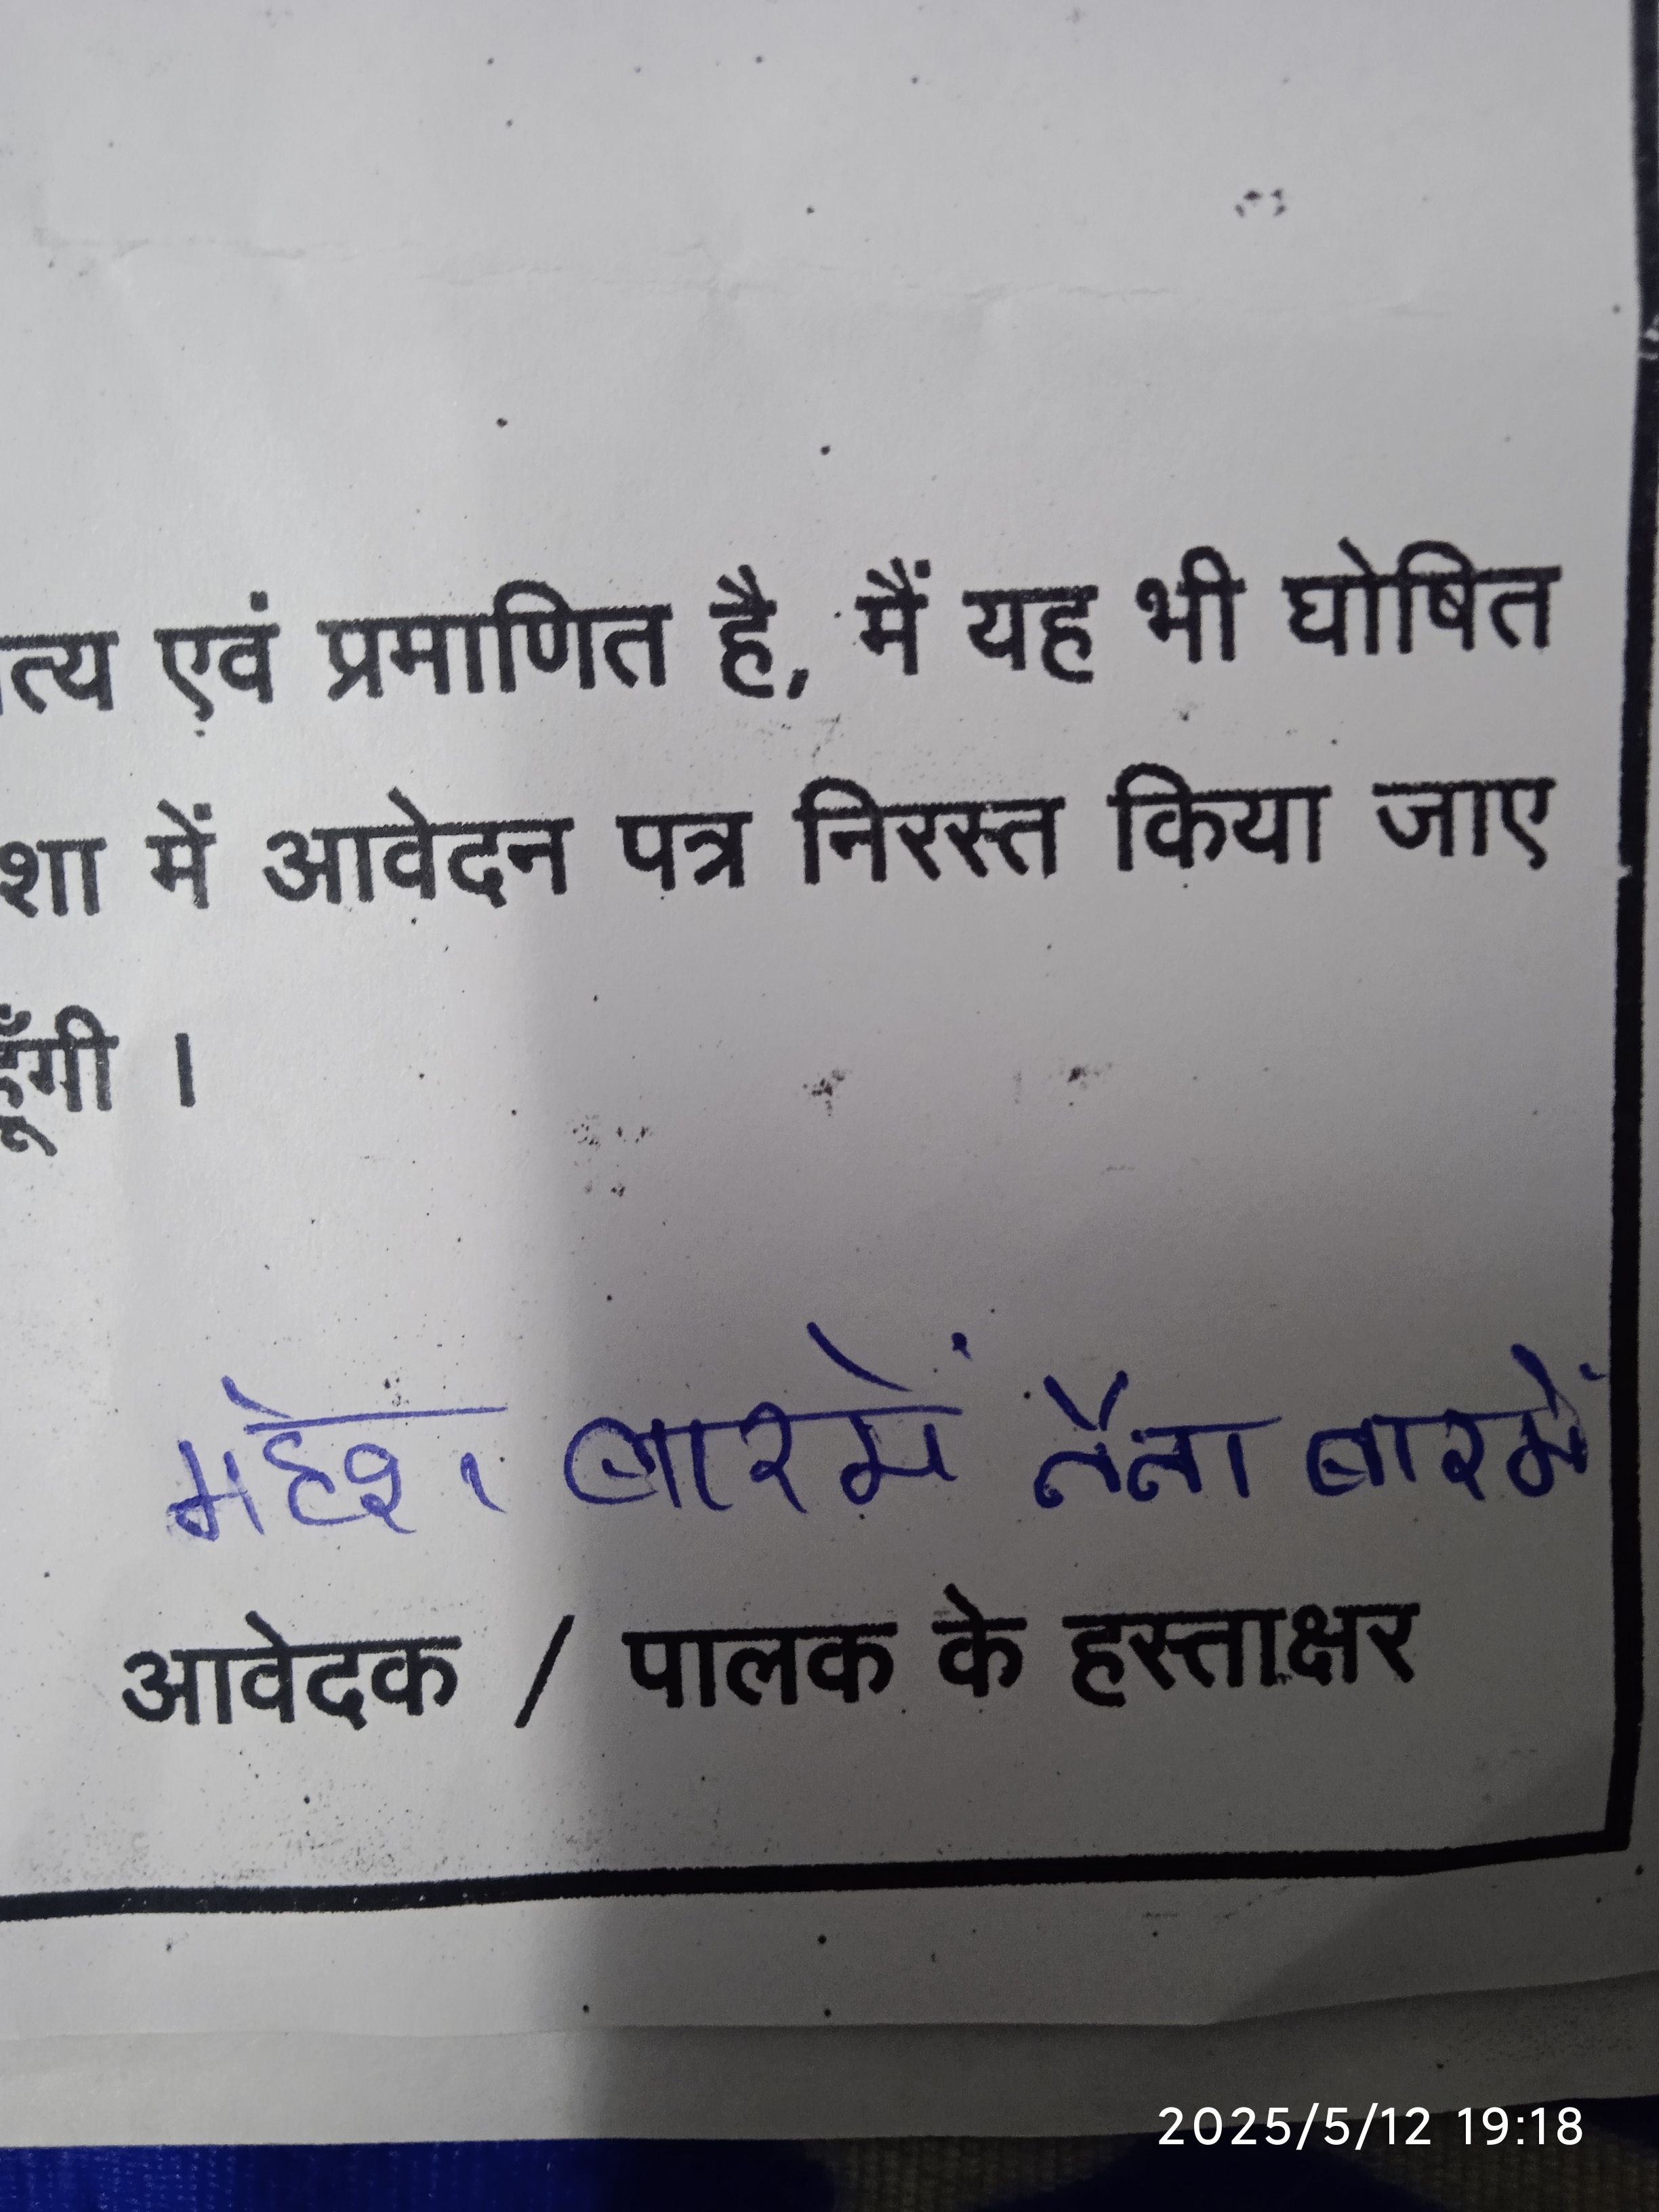 त्य एवं प्रमाणित है, मैं यह भी घोषित
शा में आवेदन पत्र निरस्त किया जाए
हूँगी ।
महेश बारमें नैना बारमें
आवेदक / पालक के हस्ताक्षर
2025/5/12 19:18